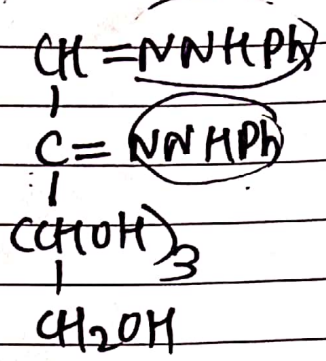 CH=NNHPh
C=NNHPh
(CHOH)3
CH2OH